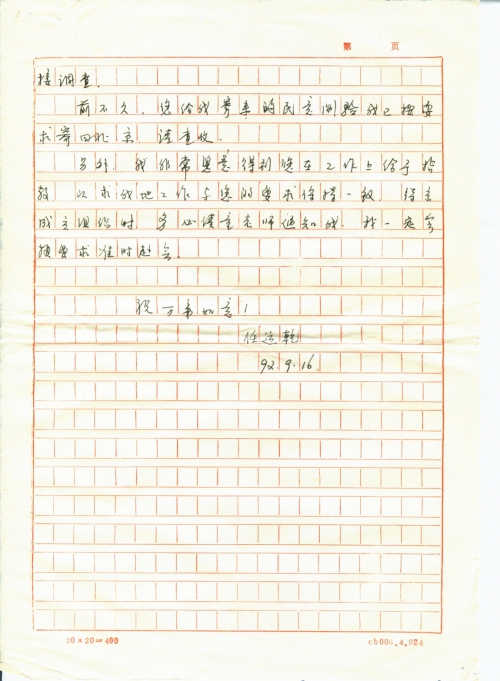 第 页
接调查.
前不久, 您给我寄来的民意测验我已按要
求寄回北京, 请查收.
另外, 我非常愿意得到您在工作上给予指
教, 以求我地工作与您的要求保持一致,
成立组织时, 务必请老师通知我, 我一定
按要求准时赴会.
祝万事如意!
92.9.16.
20×20=400
ch006.4.924